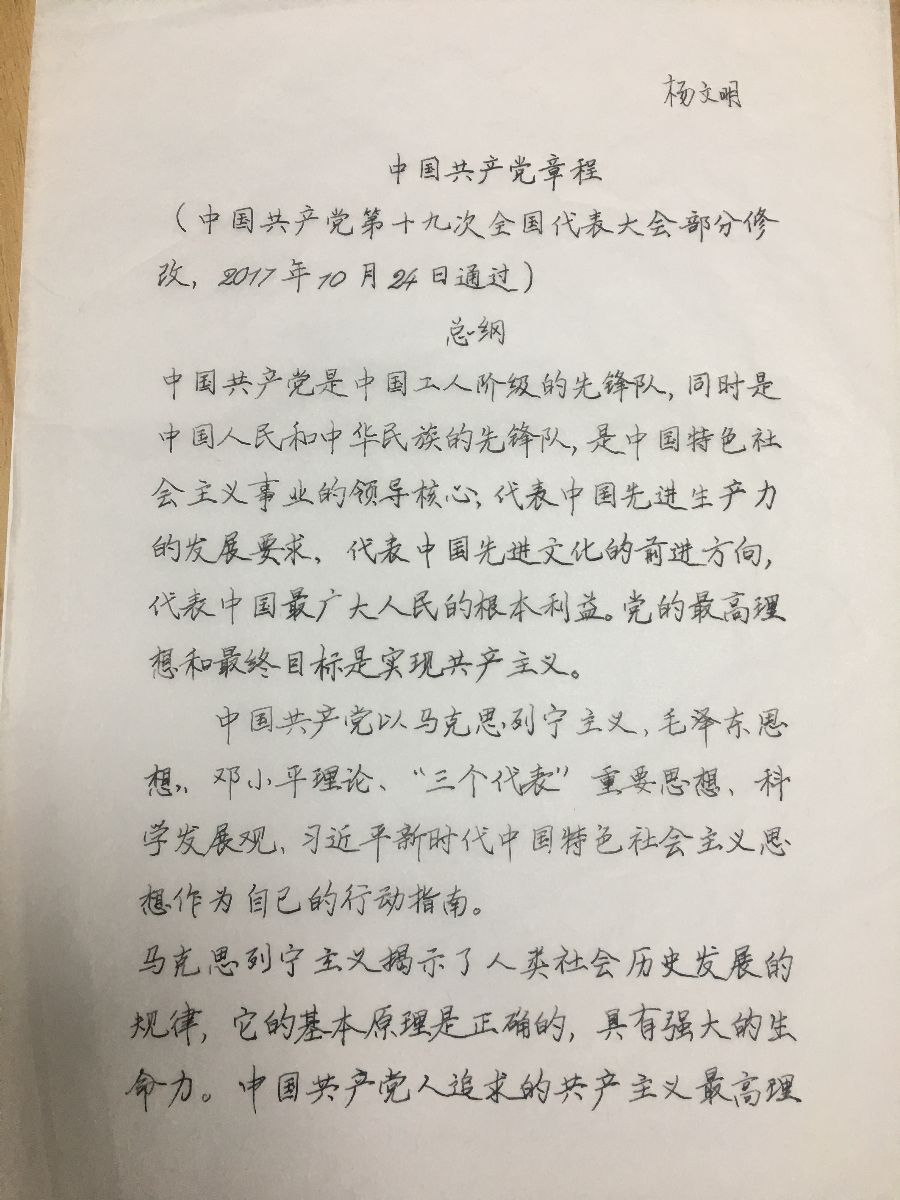 杨文明
中国共产党章程
（中国共产党第十九次全国代表大会部分修
改，2017年10月24日通过）
总纲
中国共产党是中国工人阶级的先锋队，同时是
中国人民和中华民族的先锋队，是中国特色社
会主义事业的领导核心，代表中国先进生产力
的发展要求，代表中国先进文化的前进方向，
代表中国最广大人民的根本利益。党的最高理
想和最终目标是实现共产主义。
中国共产党以马克思列宁主义、毛泽东思
想、邓小平理论、“三个代表”重要思想、科
学发展观、习近平新时代中国特色社会主义思
想作为自己的行动指南。
马克思列宁主义揭示了人类社会历史发展的
规律，它的基本原理是正确的，具有强大的生
命力。中国共产党人追求的共产主义最高理